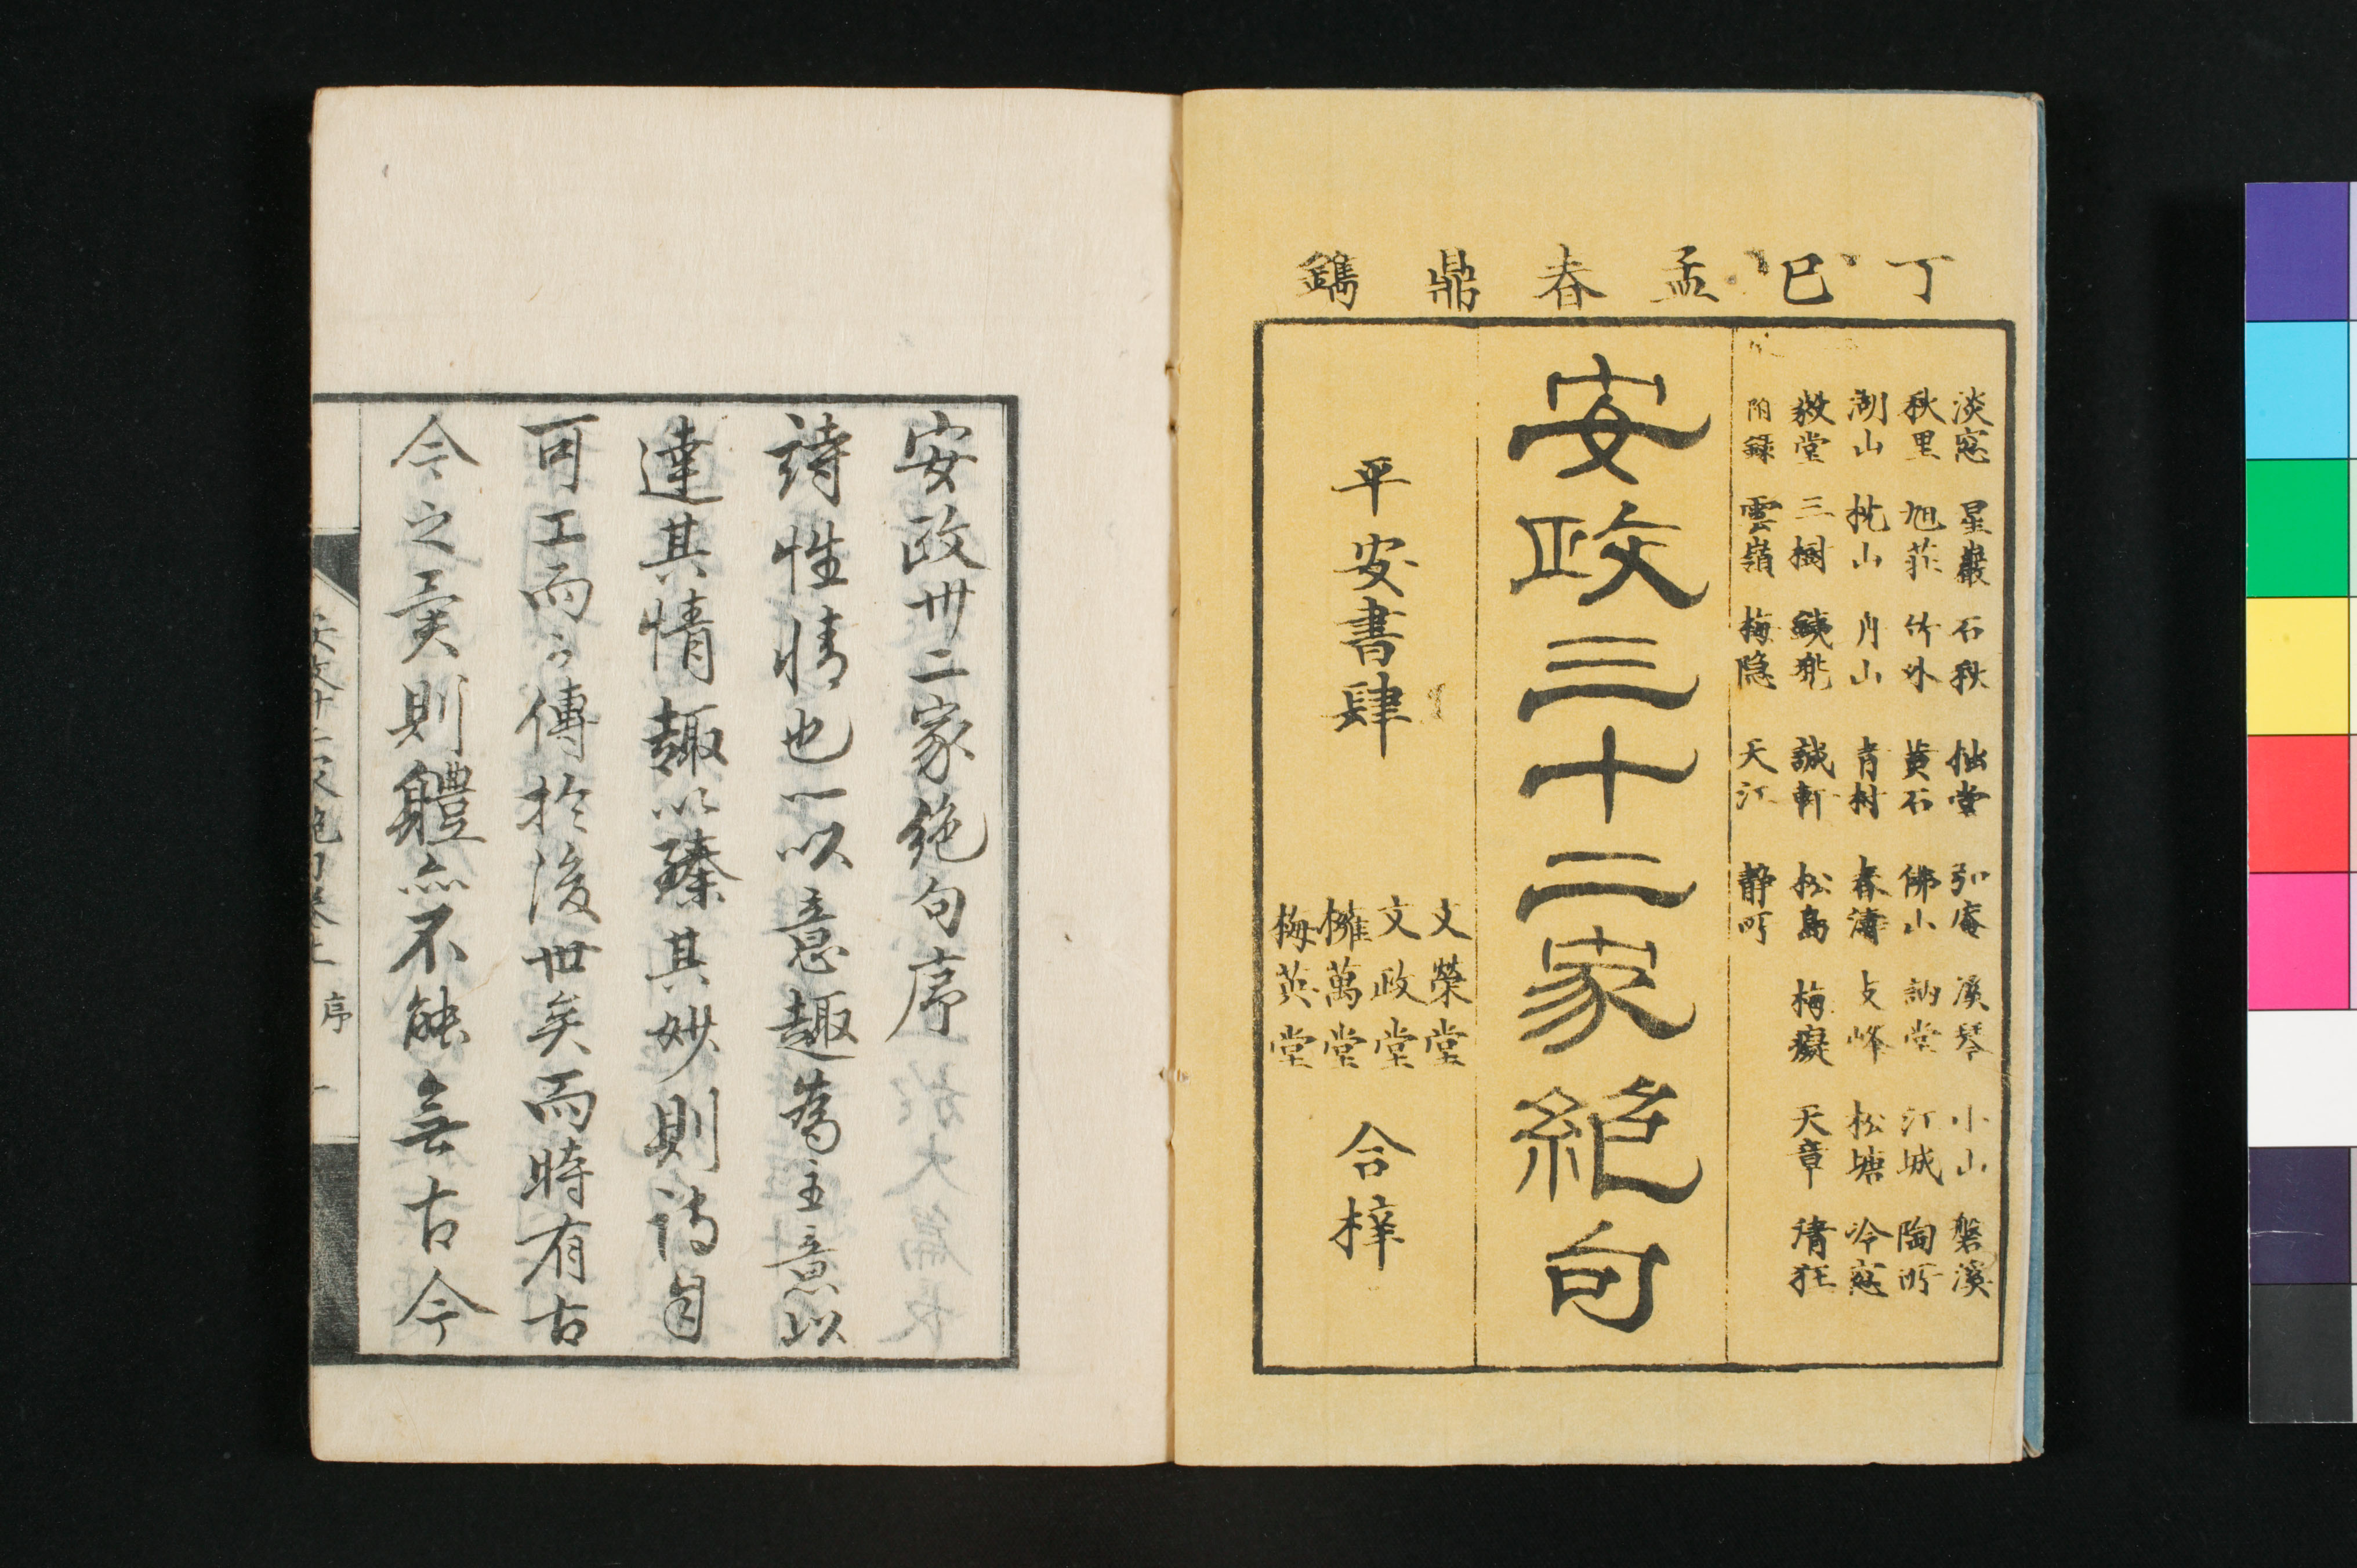 丁巳孟春鼎鐫
淡窓 星巖 石秋 拙堂 弘庵 溪琴 小山 磐溪
秋里 旭莊 竹外 黄石 佛山 訥堂 江城 陶所
湖山 枕山 月山 青村 春濤 支峰 松塘 吟窓
敎堂 三樹 鐵兜 誠軒 松島 梅癡 天章 清狂
附録 雲嶺 梅隠 天江 静所
安政三十二家絶句
平安書肆
文榮堂
文政堂
擁萬堂
梅英堂
合梓
安政卅二家絶句序
詩性情也一以意趣為主意以
達其情趣以臻其妙則詩自
可工而可傳於後世矣而時有古
今之異則體亦不能無古今
序 一